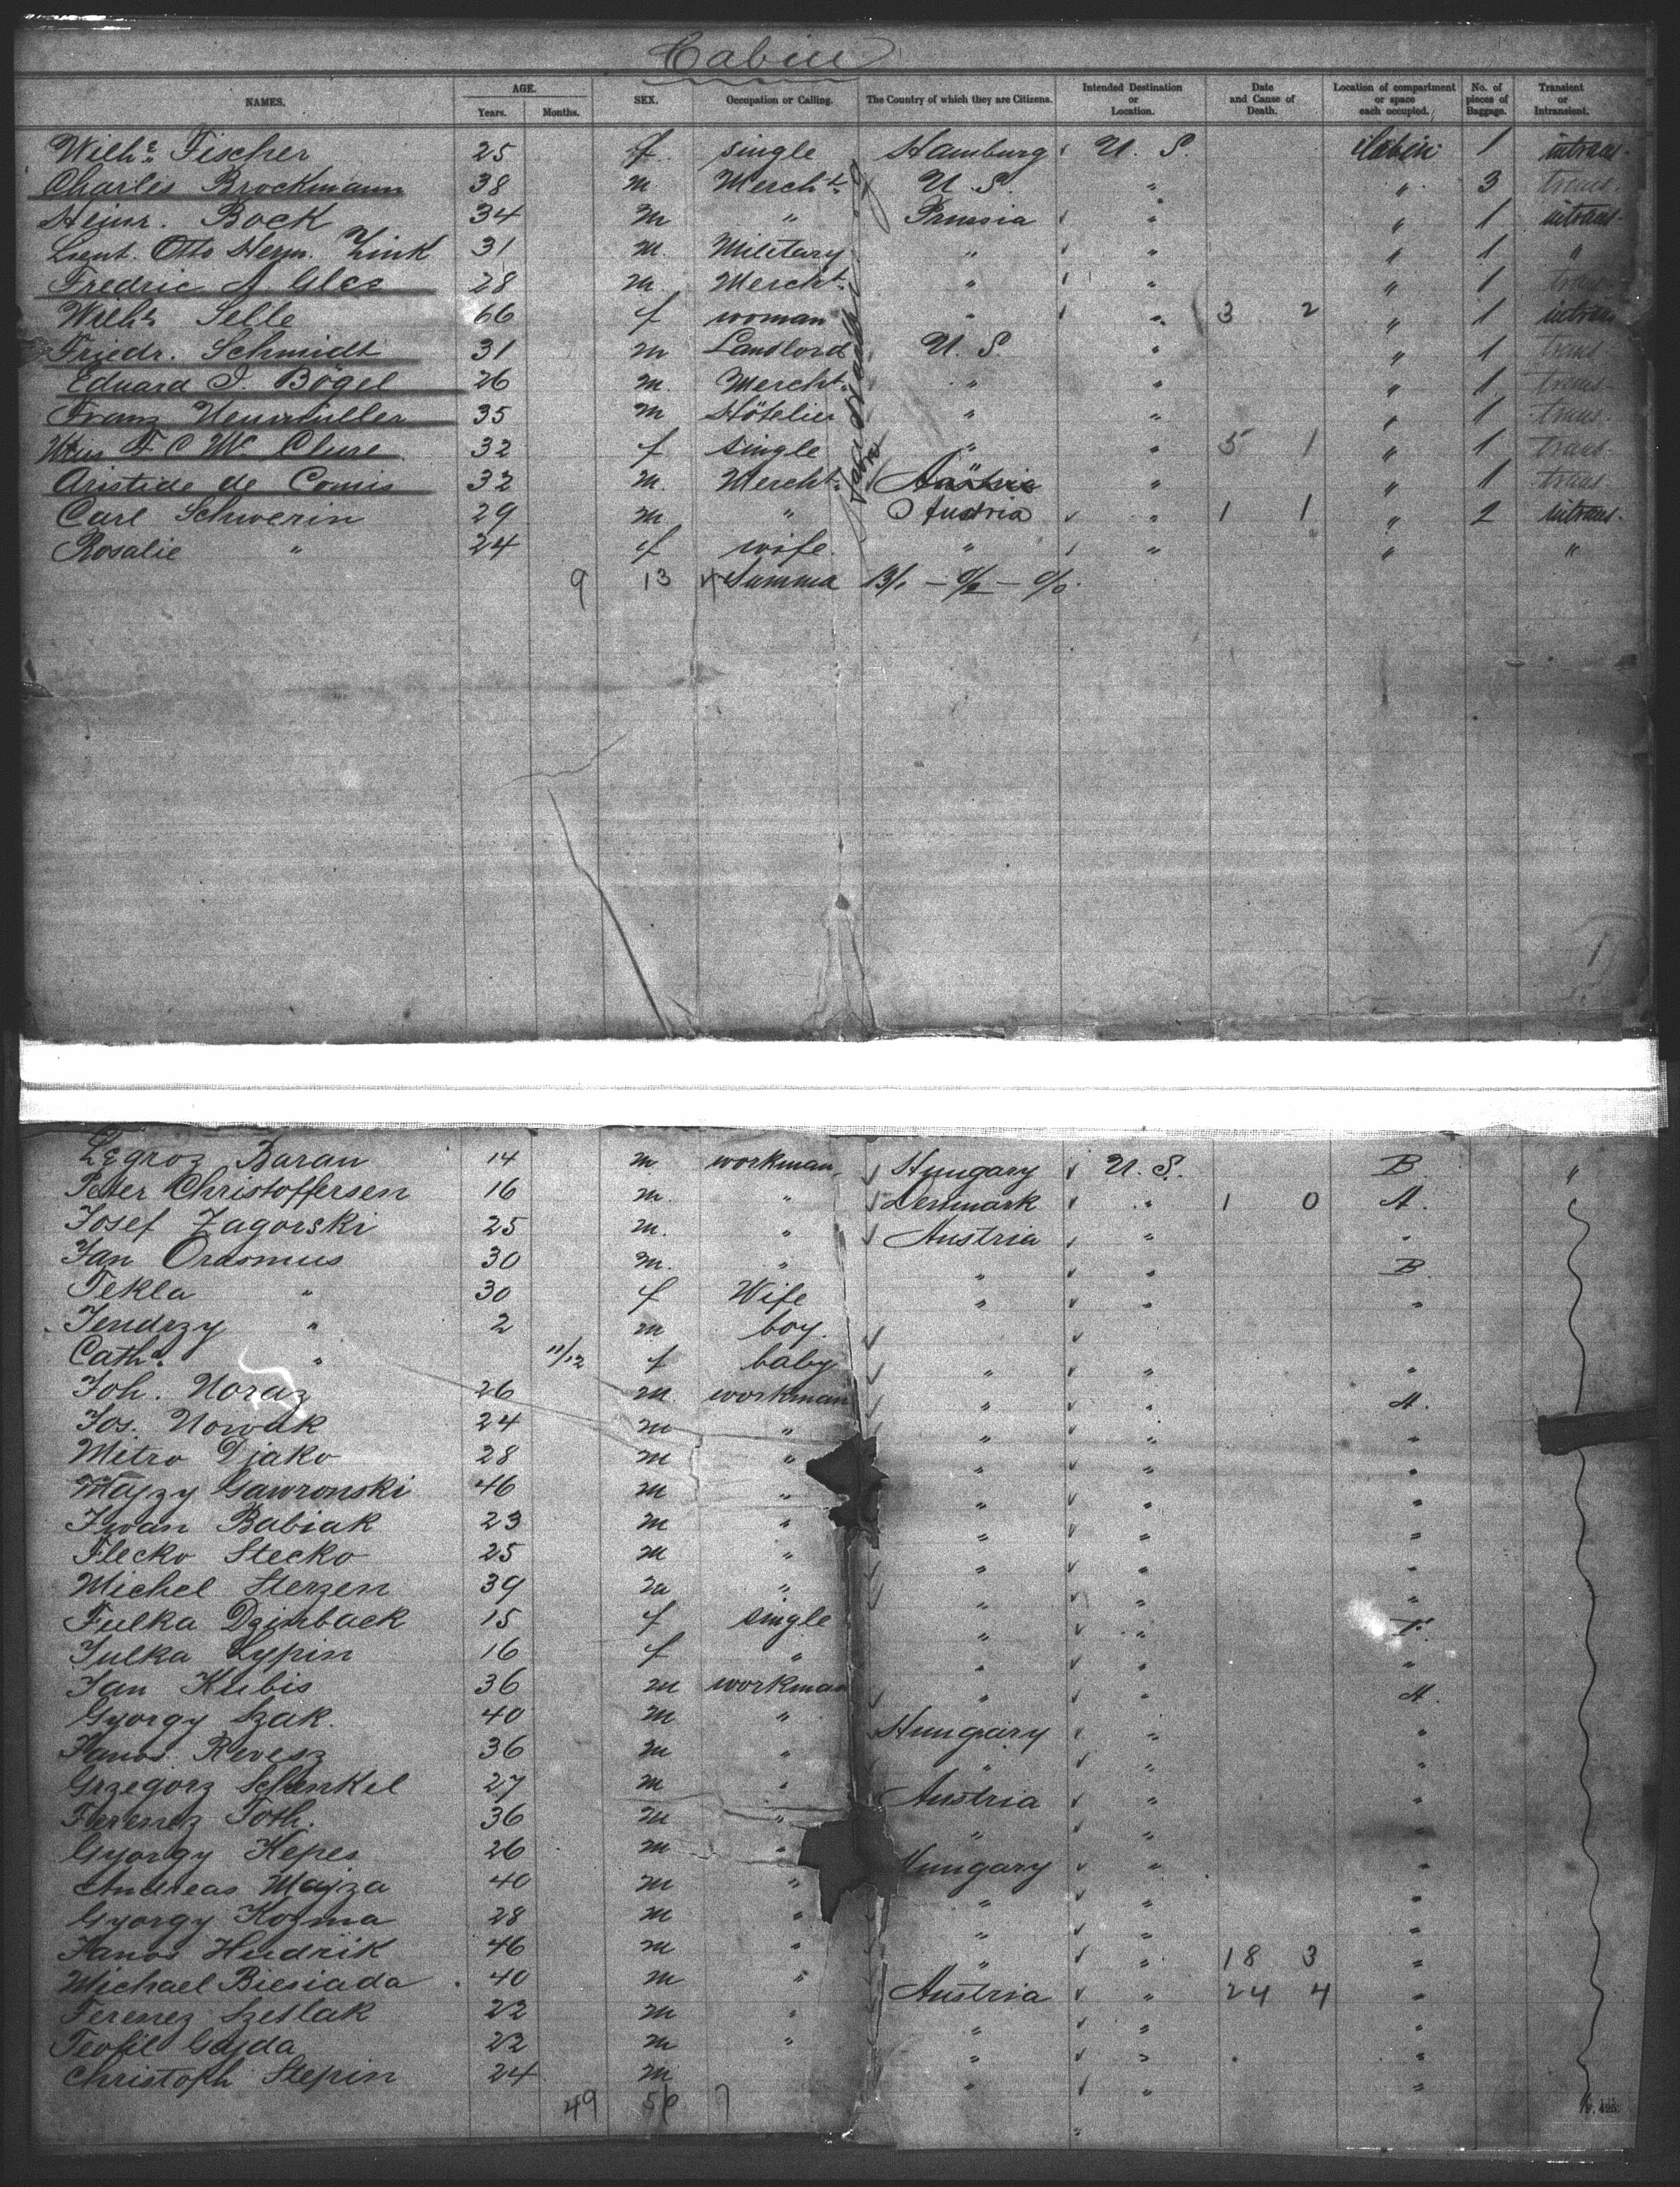 Cabin
NAMES. AGE. Years. Months. SEX. Occupation or Calling. The Country of which they are Citizens. Intended Destination or Location. Date and Cause of Death. Location of compartment or space each occupied. No. of pieces of Baggage. Transient or Intransient.
Wilhe. Fischer 25 f. single Hamburg U. S. Cabin 1 intrans.
Charles Brockmann 38 m Mercht. U. S. " " 3 trans.
Heinr. Bock 34 m " Prussia " " 1 intrans.
Lieut. Otto Herm. Zink 31 m. Military " " " 1 "
Fredric A. 28 m. Mercht. " " " 1 trans.
Wilh. Selle 66 f woman " " 3 2 " 1 intrans
Friedr. Schmidt 31 m Landlord U. S. " " 1 trans
Eduard J. Bögel 26 m. Mercht. " " " 1 trans.
Franz Neumüller 35 m Hôtelier " " " 1 trans.
F C Mc Clure 32 f single " " 5 1 " 1 trans.
Aristide de Comis 32 m. Mercht. " " 1 trans.
Carl Schwerin 29 m " Austria " 1 1 " 2 intrans.
Rosalie " 24 f wife. " " " "
9 13 4 Summa 13/1 — 0/0 — 0/0.
Baran 14 m workman Hungary U. S. B "
Peter Christoffersen 16 m. " Denmark " 1 0 A.
Josef Zagorski 25 m. " Austria " "
Jan Orasmus 30 m. " " " B.
Tekla " 30 f Wife " " "
Jendrzy " 2 m boy.
Cath. " 11/12 f baby " " "
Joh. Noraz 26 m. workman " " A.
Jos. Nowak 24 m " " " "
Metro Djako 28 m " " " "
Majzy Gawronski 46 m " " " "
Iwan Babiak 23 m " " " "
Flecko Stecko 25 m " " " "
Michel Sterzen 39 m " " " "
Fulka Dzimback 15 f single " "
Julka Lypin 16 f " " " "
Jan Kubis 36 m workman " " A.
Gyorgy Szak. 40 m " Hungary " "
Janos Revesz 36 m " " " "
Grzegorz Schenkel 27 m " Austria " "
Ferencz Toth. 36 m " " " "
Gyorgy Kepes 26 m " Hungary " "
Andreas Majza 40 m " " " "
Gyorgy Kozma 28 m " " " "
Janos Hudrik 46 m " " " 18 3 "
Michael Biesiada 40 m " Austria " 24 4 "
Ferencz Szetlak 22 m " " " "
Teofil Gajda 22 m " " " "
Christoph Stepin 24 m " " "
49 56 7